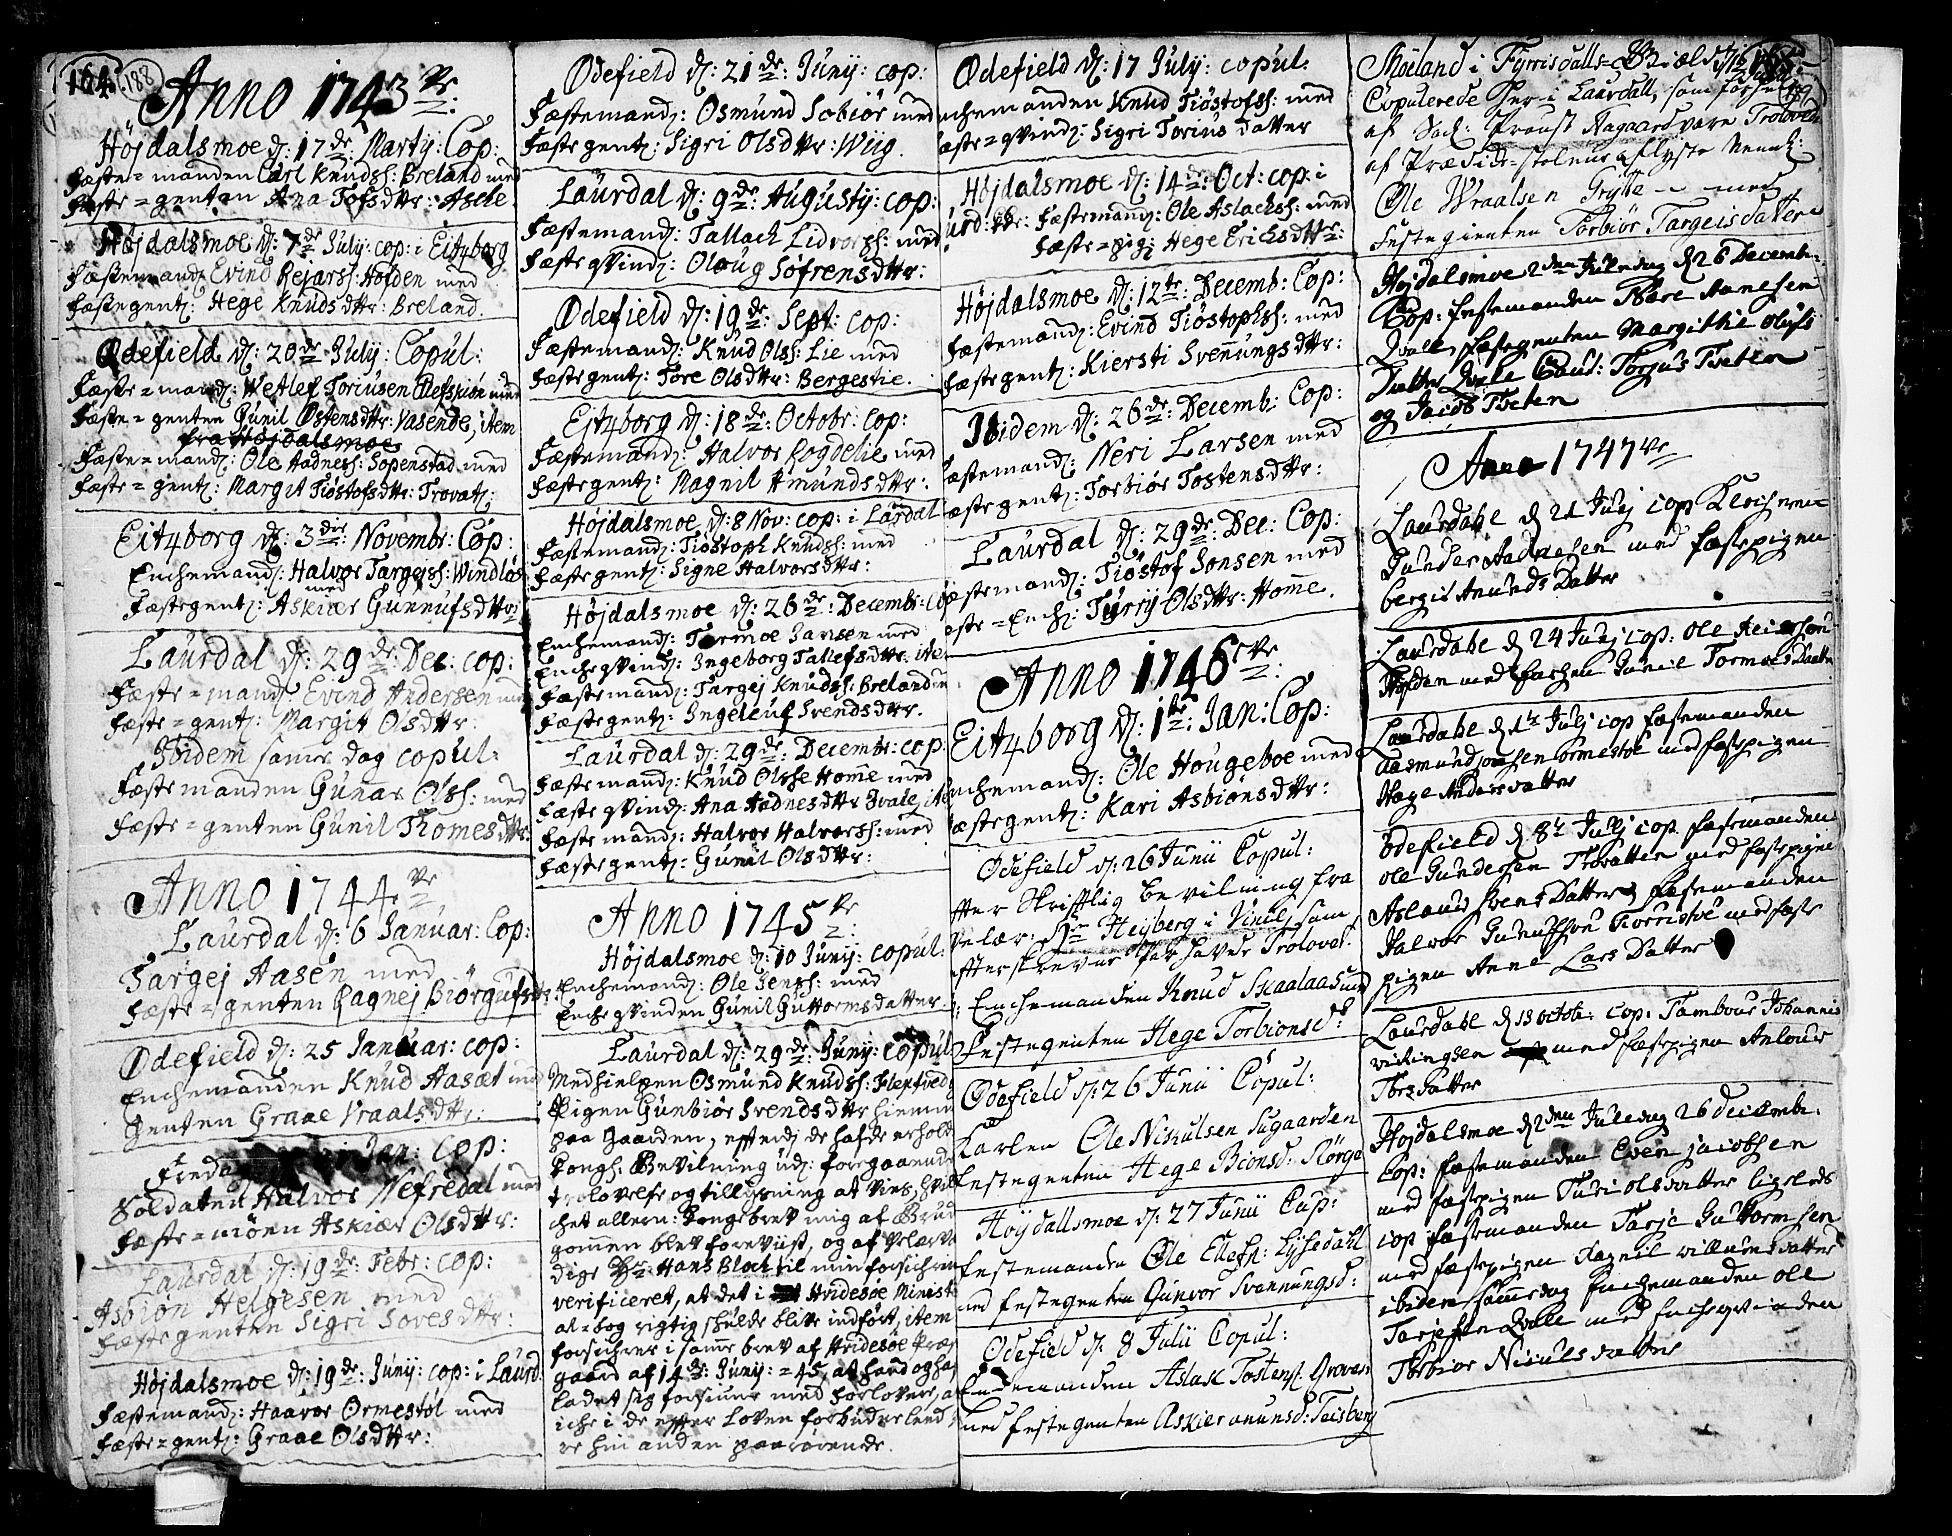 164. 188
Anno 1743 ve:
Höjdalsmoe d: 17de: Martij: Cop:
Fæste=manden Carl Knuds: Breland med
Fæste=genten Ana Tofsdttr: Asche.
Höjdalsmoe d: 7de July: cop: i Eitzborg
Fæstemand: Evind Rejars: Hofden med
Fæstegent: Hege Knudsdttr: Breland.
Ødefield d: 20de July: Copul:
Fæste=mand: Wetlef Toriusen Olefskiön med
Fæste=genten Gunil Östensdttr: Vasende, item
fra Höjdalsmoe
Fæste=mand: Ole Aadness: Sopenstad med
Fæste=gent: Margit Tiöstofsdttr: Trovatz:
Eitzborg d: 3die: Novembr: Cop:
Enchemand: Halvor Targejs: Windlös
med
Fæstegent: Askiær Gunnufsdttr:
Laurdal d: 29de: Dec: cop:
Fæste=mand: Evind Andersen med
Fæste=gent: Margit Olsdttr:
Ibidem samme dag copul:
Fæstemanden Gunar Ols: med
Fæste=genten Gunil Thomesdttr:
Anno 1744 ve
Laurdal d: 6 Januar: Cop:
Targej Aasen med
Fæste=genten Ragnej Biörgufsdtr:
Ødefield d: 25 Januar: cop:
Enchemanden Knud Aasæt med
Genten Graae Vraalsdttr:
Fredag Jan: cop:
Soldaten Halvor Nefredal med
Fæste=möen Askiær Olsdttr:
Laurdal d: 19de Febr: cop:
Asbiön Helgesen med
Fæstegenten Sigri Soresdttr:
Höjdalsmoe d: 19de Junij: cop: i Laurd.
Fæstemand: Haavor Ormestöl med
Fæste=gent: Graae Olsdttr:
Ødefield d: 21de: Junij: cop:
Fæstemand: Osmund Sobiör med
Fæstegent: Sigri Olsdttr: Wiig.
Laurdal d: 9de: Augustij: cop:
Fæstemand: Tallach Lidvors: med
Fæsteqvind: Oloug Söfrensdttr:
Ødefield d: 19de: Sept: cop:
Fæstemand: Knud Ols: Lie med
Fæstegent: Tore Olsdttr: Bergestie.
Eitzborg d: 18de: Octobr: cop:
Fæstemand: Halvor Rogdelie med
Fæstegent: Magnil Amundsdttr:
Höjdalsmoe d: 8 Nov: cop: i Lardal
Fæstemand: Tiöstoph Knuds: med
Fæstegent: Signe Halvorsdttr:
Höjdalsmoe d: 26de: Decembr: cop
Enchemand: Tormoe Jansen med
Encheqvind: Ingeborg Tallefsdttr: ite
Fæstemand: Targej Knuds: Breland m
Fæstegent: Ingeleuf Svendsdttr.
Laurdal d: 29de: Decembr: cop:
Fæstemand: Knud Olsse Home med
Fæsteqvind: Ana Aadnesdttr Qvale, ite
Fæstemand: Halvor Halvors: med
Fæstegent: Gunil Olsdttr:
Anno 1745 ve:
Höjdalsmoe d: 10 Junij: copul:
Enchemand: Ole Jens: med
Encheqvinden Gunil Guttormsdatter.
Laurdal d: 29de: Junij: copul
Medhielpen Osmund Knuds: med
Pigen Gunbiör Svendsdttr hiemme
paa Gaarden, efftend: de hafde erhold
Kongl: Bevilning ud: foregaaende
trolovelse og tillysning at vies, hvil
chet allern: Kongebrev mig af Brud
gommen blev foreviist, og af velærvær
dige Hr Hans Bloch til min forsichring
verificeret, at det i Hvidesöe Ministe
al=bog rigtig skulde blive indfört, item
forsichrer i samme brev af Hvidesöe Præs
gaard af 14de: Junij: =45, at hand og ha
ladet sig forsiune med forlovere, a
iche i de effter Loven forbudne leed
re hin anden paarörende.
Ødefield d: 17 July: copul:
nchemanden Knud Tiöstofs: med
æste=qvind: Sigri Torius Datter
Höjdalsmoe d: 14de: Oct: cop: i
urd: Fæstemand: Ole Aslachs: med
Fæste=pig: Hege Erichsdttr:
Höjdalsmoe d: 12te: Decemb: Cop:
Fæstemand: Evind Tiöstophs: med
Fæstegent: Kiersti Svenungsdttr:
Ibidem d: 26de: Decemb: Cop:
æstemand: Neri Larsen med
æstegent: Torbiör Tostensdttr:
Laurdal d: 29de: Dec: Cop:
æstemand: Tiöstof Jonsen med
æste=Ench: Tyrrij Olsdttr: Home.
Anno 1746 ve:
Eitzborg d: 1te: Jan: Cop:
nchemand: Ole Hougeboe med
æstegent: Kari Asbiönsdttr:
Ødefield d: 26 Junii Copul:
ffter Skrifftlig bevilning fra
velær: Hr Heyberg i Vinil, som
effterskrevne Par havde Trolovet
Enchemanden Knud Skaalaas med
Festegenten Hege Torbionsdr:
Ødefield d: 26 Junii Copul:
Karlen Ole Niculsen Sugaarden
Festegenten Hege Bionsd: Rörge
Höydallsmoe d: 27 Junii Cup:
Festemanden Ole Ellefs: Lysedahl
med festegenten Gunvor Svennungsd:
Ødefield d: 8 Julii Copul:
Enchemanden Aslak Tostens: Groven
med festegenten Askier Anunsd: Teisberg
Möeland i Fyrrisdalls
Copulerede her i Laurdall, som forhen
af Sac: Proust Aagaard vare Trolovede
af Prædike=stolen aflyste Nemnl:
Ole Wraalsen Grytte - med
Festegienten Torbiör Targeisdatter
Höjdalsmoe 2den Juledag d 26 Decembr:
Cop: fæstemanden Tore Aanesen
Qvale, fæstegenten Margithe Olufs
Datter Qvale Caut: Torgus Tveten
og Jacob Tveten
Anno 1747 ve
Laurdahl d 21 July cop
Gunder Aadnesen med fæstepigen
bergit Anunds Datter
Laurdahl d 24 July cop: Ole
Hofden med Gunil Tormoes Datter
Laurdahl d July cop fæstemanden
Aasmund Ormestöl med fæstepigen
Hage Anders Datter
Ödefield d 8de July cop fæstemanden
ole Gundersen Trovatten med fæstepigen
Aslaug Svens Datter, fæstemanden
Halvor med fæste
pigen Anne Lars Datter
Laurdahl d 13 octobr: cop: Tambour Johannes
Vikingsen med fæstepigen
Tors Datter
Hojdalsmoe d 2den Juledag 26 Decembr:
Cop: fæstemanden Even Jacobsen
med fæstepigen Turi Olsdatter ligeledes
cop fæstemanden Tarje Guttormsen
med fæstepigen Datter
ibidem samedag Enchemanden ole
Tarjesen Qvale med Encheqvinden
Torbiör Niculsdatter